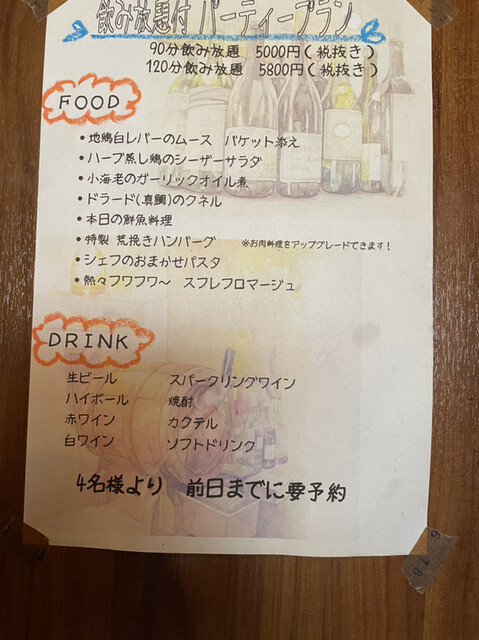 飲み放題付 パーティープラン
90分飲み放題 5000円(税抜き)
120分飲み放題 5800円(税抜き)
FOOD
・地鶏白レバーのムース バケット添え
・ハーブ蒸し鶏のシーザーサラダ
・小海老のガーリックオイル煮
・ドラード(真鯛)のクネル
・本日の鮮魚料理
・特製 荒挽きハンバーグ ※お肉料理をアップグレードできます!
・シェフのおまかせパスタ
・熱々フワフワ〜 スフレフロマージュ
DRINK
生ビール スパークリングワイン
ハイボール 焼酎
赤ワイン カクテル
白ワイン ソフトドリンク
4名様より 前日までに要予約
6 7 8